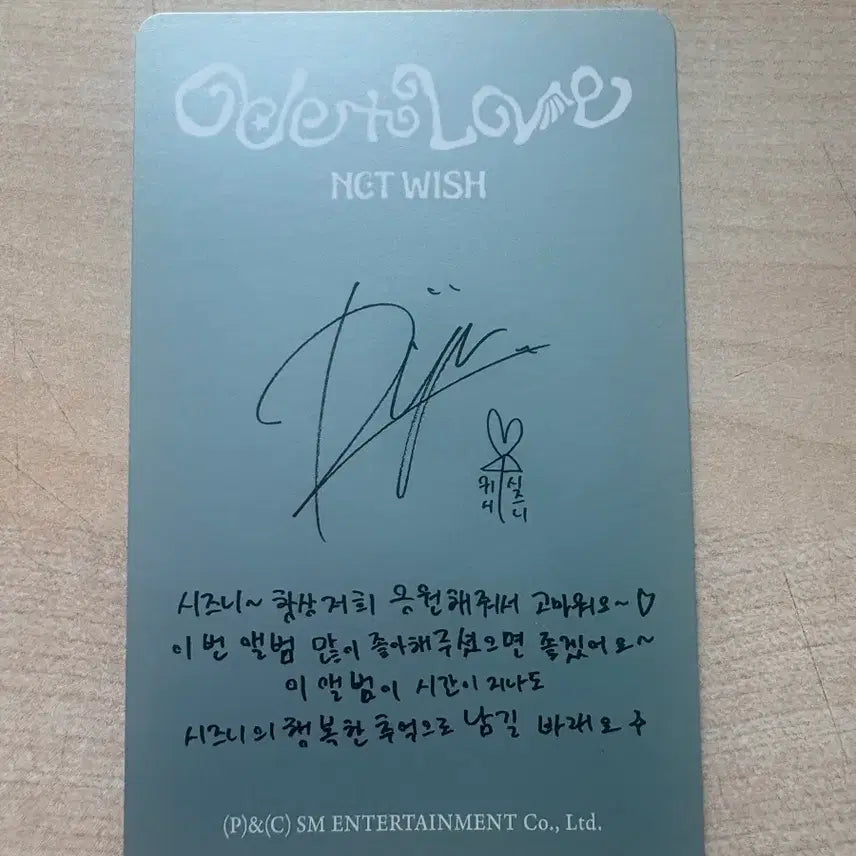 Ode to Love
NCT WISH
시즈니~ 항상 저희 응원해줘서 고마워요~♡
이번 앨범 많이 좋아해주셨으면 좋겠어요~
이 앨범이 시간이 지나도
시즈니의 행복한 추억으로 남길 바래요
(P)&(C) SM ENTERTAINMENT Co., Ltd.